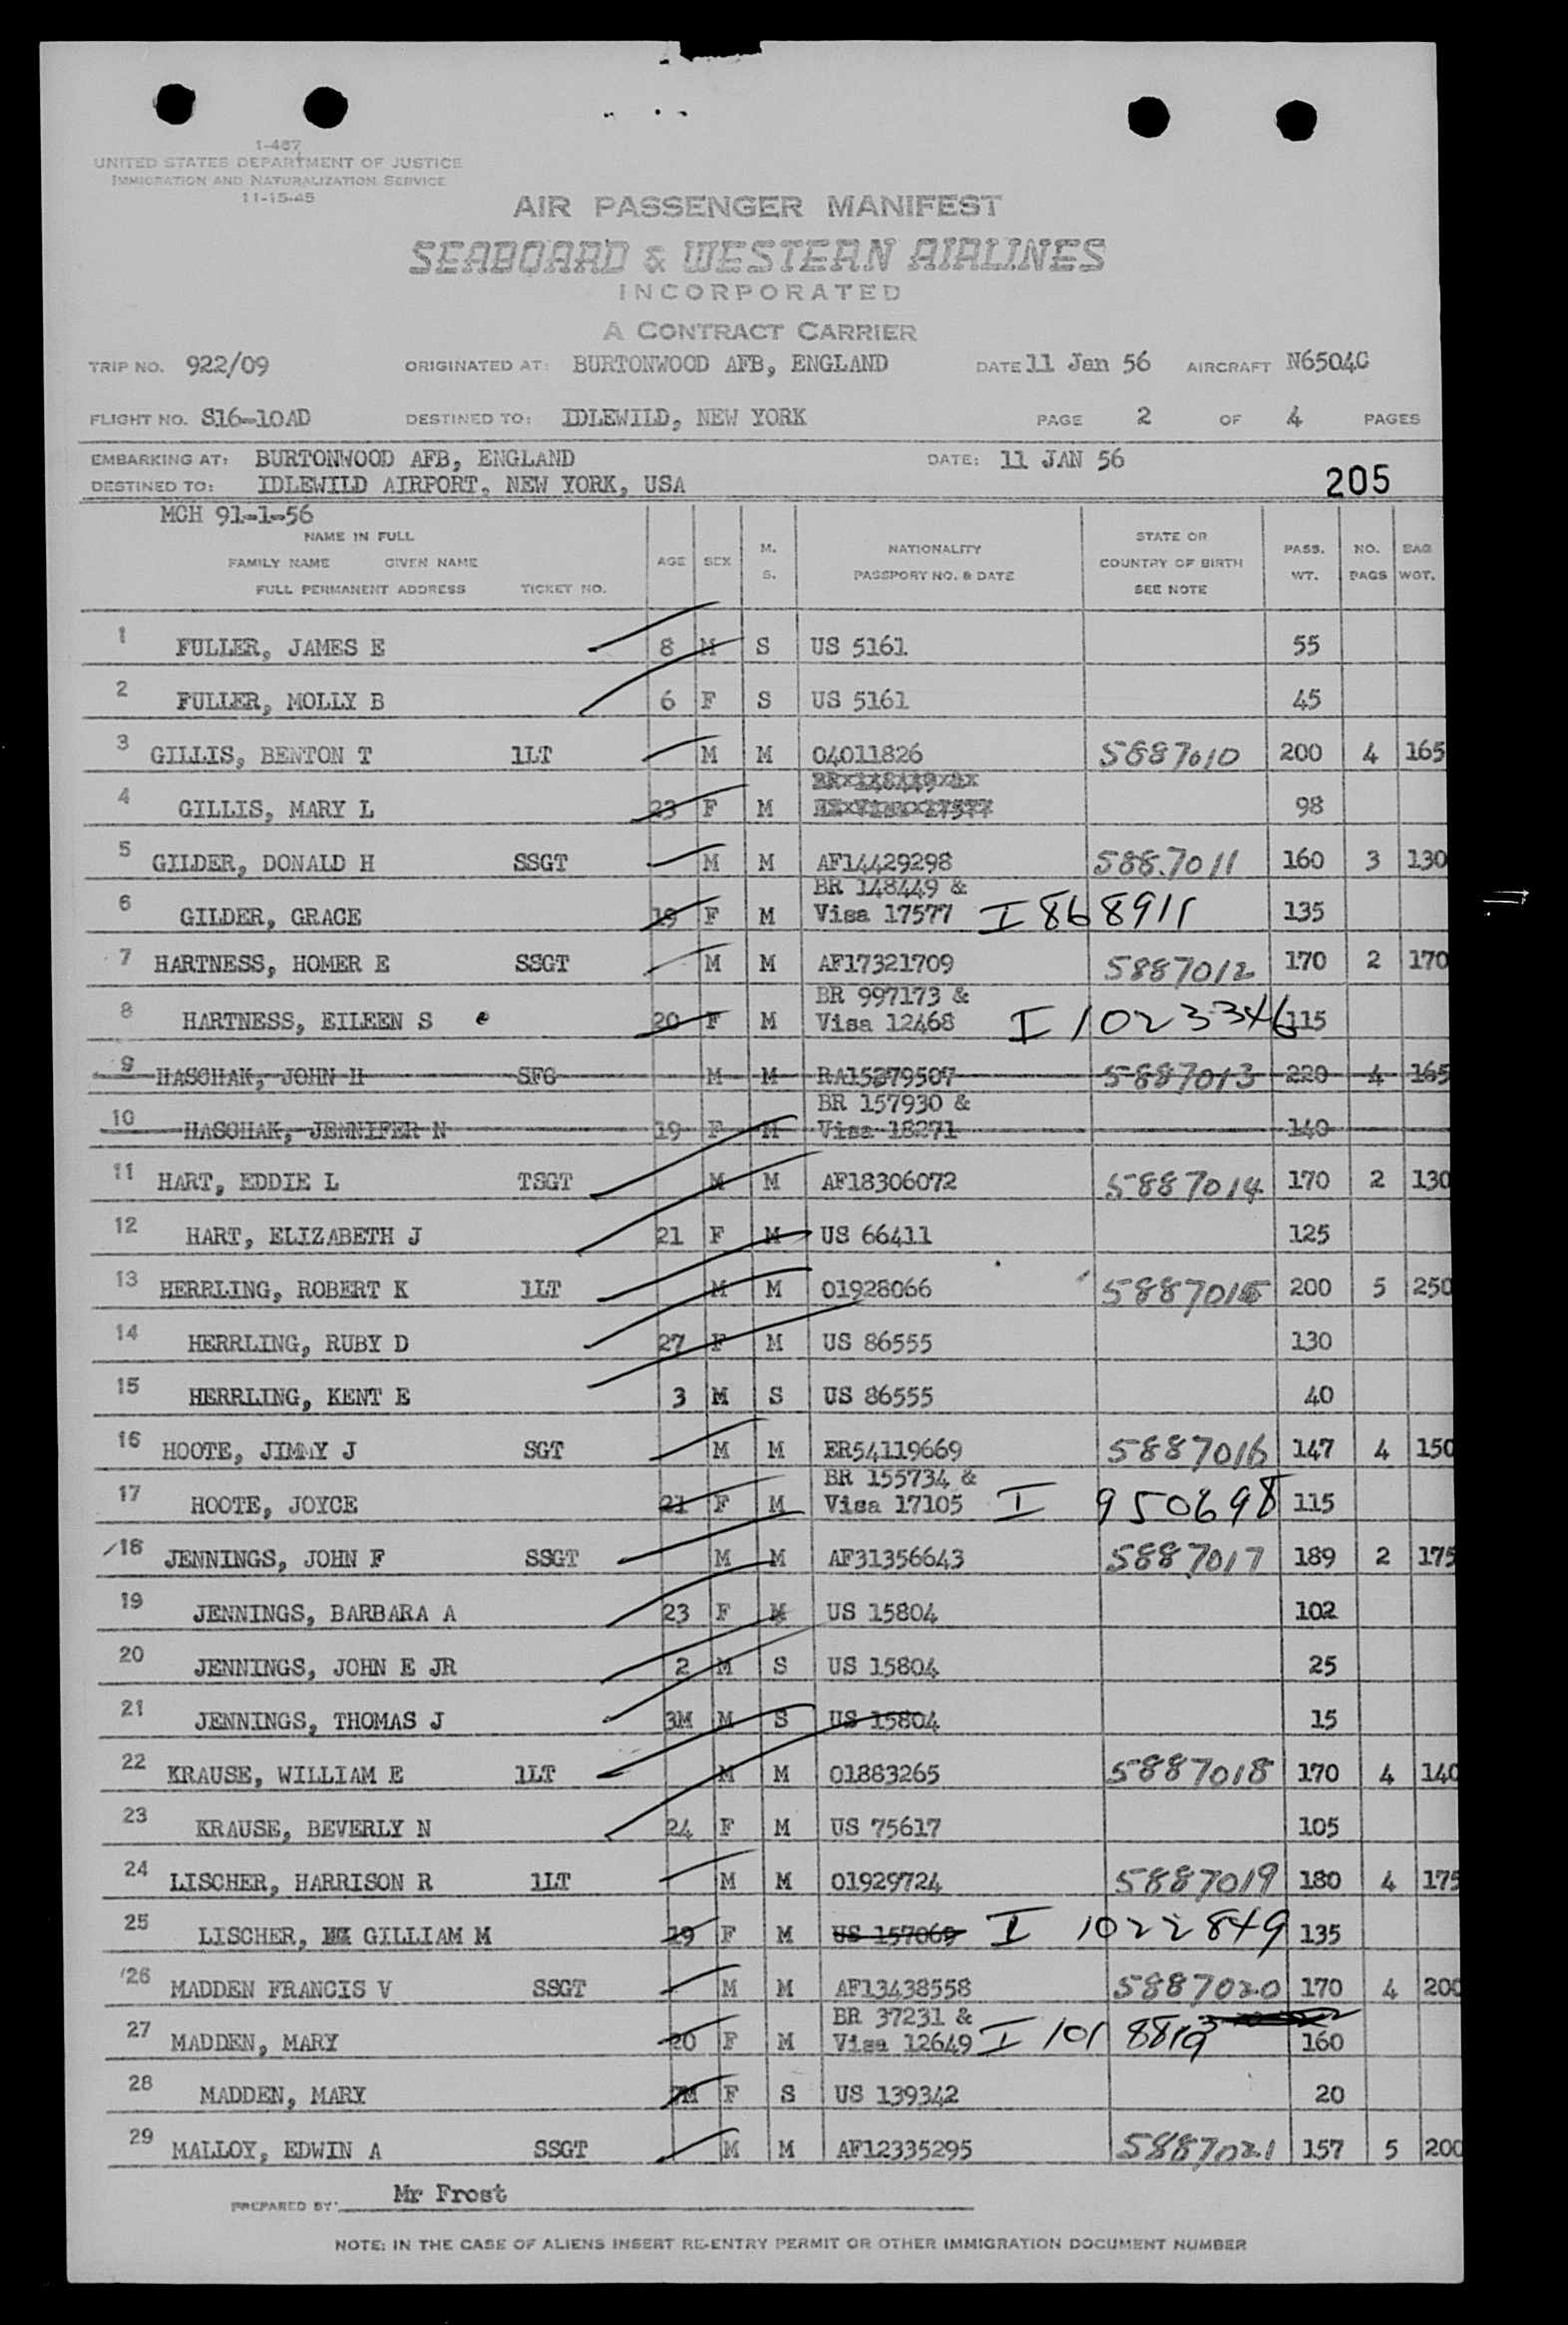 1-467
UNITED STATES DEPARTMENT OF JUSTICE
IMMIGRATION AND NATURALIZATION SERVICE
11-15-45
AIR PASSENGER MANIFEST
SEABOARD & WESTERN AIRLINES
INCORPORATED
A CONTRACT CARRIER
TRIP NO. 922/09 ORIGINATED AT: BURTONWOOD AFB, ENGLAND DATE 11 Jan 56 AIRCRAFT N6504C
FLIGHT NO. S16-10AD DESTINED TO: IDLEWILD, NEW YORK PAGE 2 OF 4 PAGES
EMBARKING AT: BURTONWOOD AFB, ENGLAND DATE: 11 JAN 56
DESTINED TO: IDLEWILD AIRPORT, NEW YORK, USA 205
MCH 91-1-56
NAME IN FULL
FAMILY NAME GIVEN NAME
FULL PERMANENT ADDRESS TICKET NO. AGE SEX M. S. NATIONALITY PASSPORT NO. & DATE STATE OR COUNTRY OF BIRTH SEE NOTE PASS. WT. NO. BAGS BAG WGT.
1 FULLER, JAMES E 8 M S US 5161 55
2 FULLER, MOLLY B 6 F S US 5161 45
3 GILLIS, BENTON T 1LT M M 04011826 5887010 200 4 165
4 GILLIS, MARY L 23 F M 98
5 GILDER, DONALD H SSGT M M AF14429298 5887011 160 3 130
BR 148449 &
6 GILDER, GRACE 19 F M Visa 17577 I 868911 135
7 HARTNESS, HOMER E SSGT M M AF17321709 5887012 170 2 170
BR 997173 &
8 HARTNESS, EILEEN S 20 F M Visa 12468 I 1023346 115
9 HASCHAK, JOHN H SFC M M RA15279507 5887013 220 4 165
BR 157930 &
10 HASCHAK, JENNIFER N 19 F M Visa 18271 140
11 HART, EDDIE L TSGT M M AF18306072 5887014 170 2 130
12 HART, ELIZABETH J 21 F M US 66411 125
13 HERRLING, ROBERT K 1LT M M 01928066 5887015 200 5 250
14 HERRLING, RUBY D 27 F M US 86555 130
15 HERRLING, KENT E 3 M S US 86555 40
16 HOOTE, JIMMY J SGT M M ER54119669 5887016 147 4 150
BR 155734 &
17 HOOTE, JOYCE 21 F M Visa 17105 I 950698 115
18 JENNINGS, JOHN F SSGT M M AF31356643 5887017 189 2 175
19 JENNINGS, BARBARA A 23 F M US 15804 102
20 JENNINGS, JOHN E JR 2 M S US 15804 25
21 JENNINGS, THOMAS J 3M M S US 15804 15
22 KRAUSE, WILLIAM E 1LT M M 01883265 5887018 170 4 140
23 KRAUSE, BEVERLY N 24 F M US 75617 105
24 LISCHER, HARRISON R 1LT M M 01929724 5887019 180 4 175
25 LISCHER, GILLIAM M 19 F M US 157069 I 1022849 135
26 MADDEN FRANCIS V SSGT M M AF13438558 5887020 170 4 200
BR 37231 &
27 MADDEN, MARY 20 F M Visa 12649 I 160
28 MADDEN, MARY 7M F S US 139342 20
29 MALLOY, EDWIN A SSGT M M AF12335295 5887021 157 5 200
PREPARED BY: Mr Frost
NOTE: IN THE CASE OF ALIENS INSERT RE-ENTRY PERMIT OR OTHER IMMIGRATION DOCUMENT NUMBER